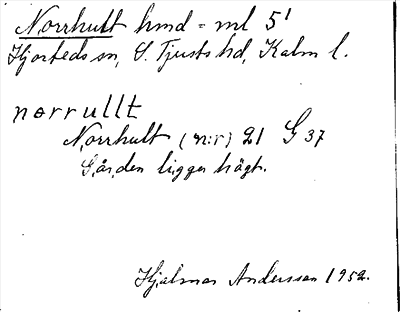 Norrhult hmd = ml 5¹
Hjorteds sn, S. Tjusts hd, Kalm l.
norrullt
Norrhult (n:r) 21 G 37
Gården ligger högt.
Hjalmar Andersson 1952.